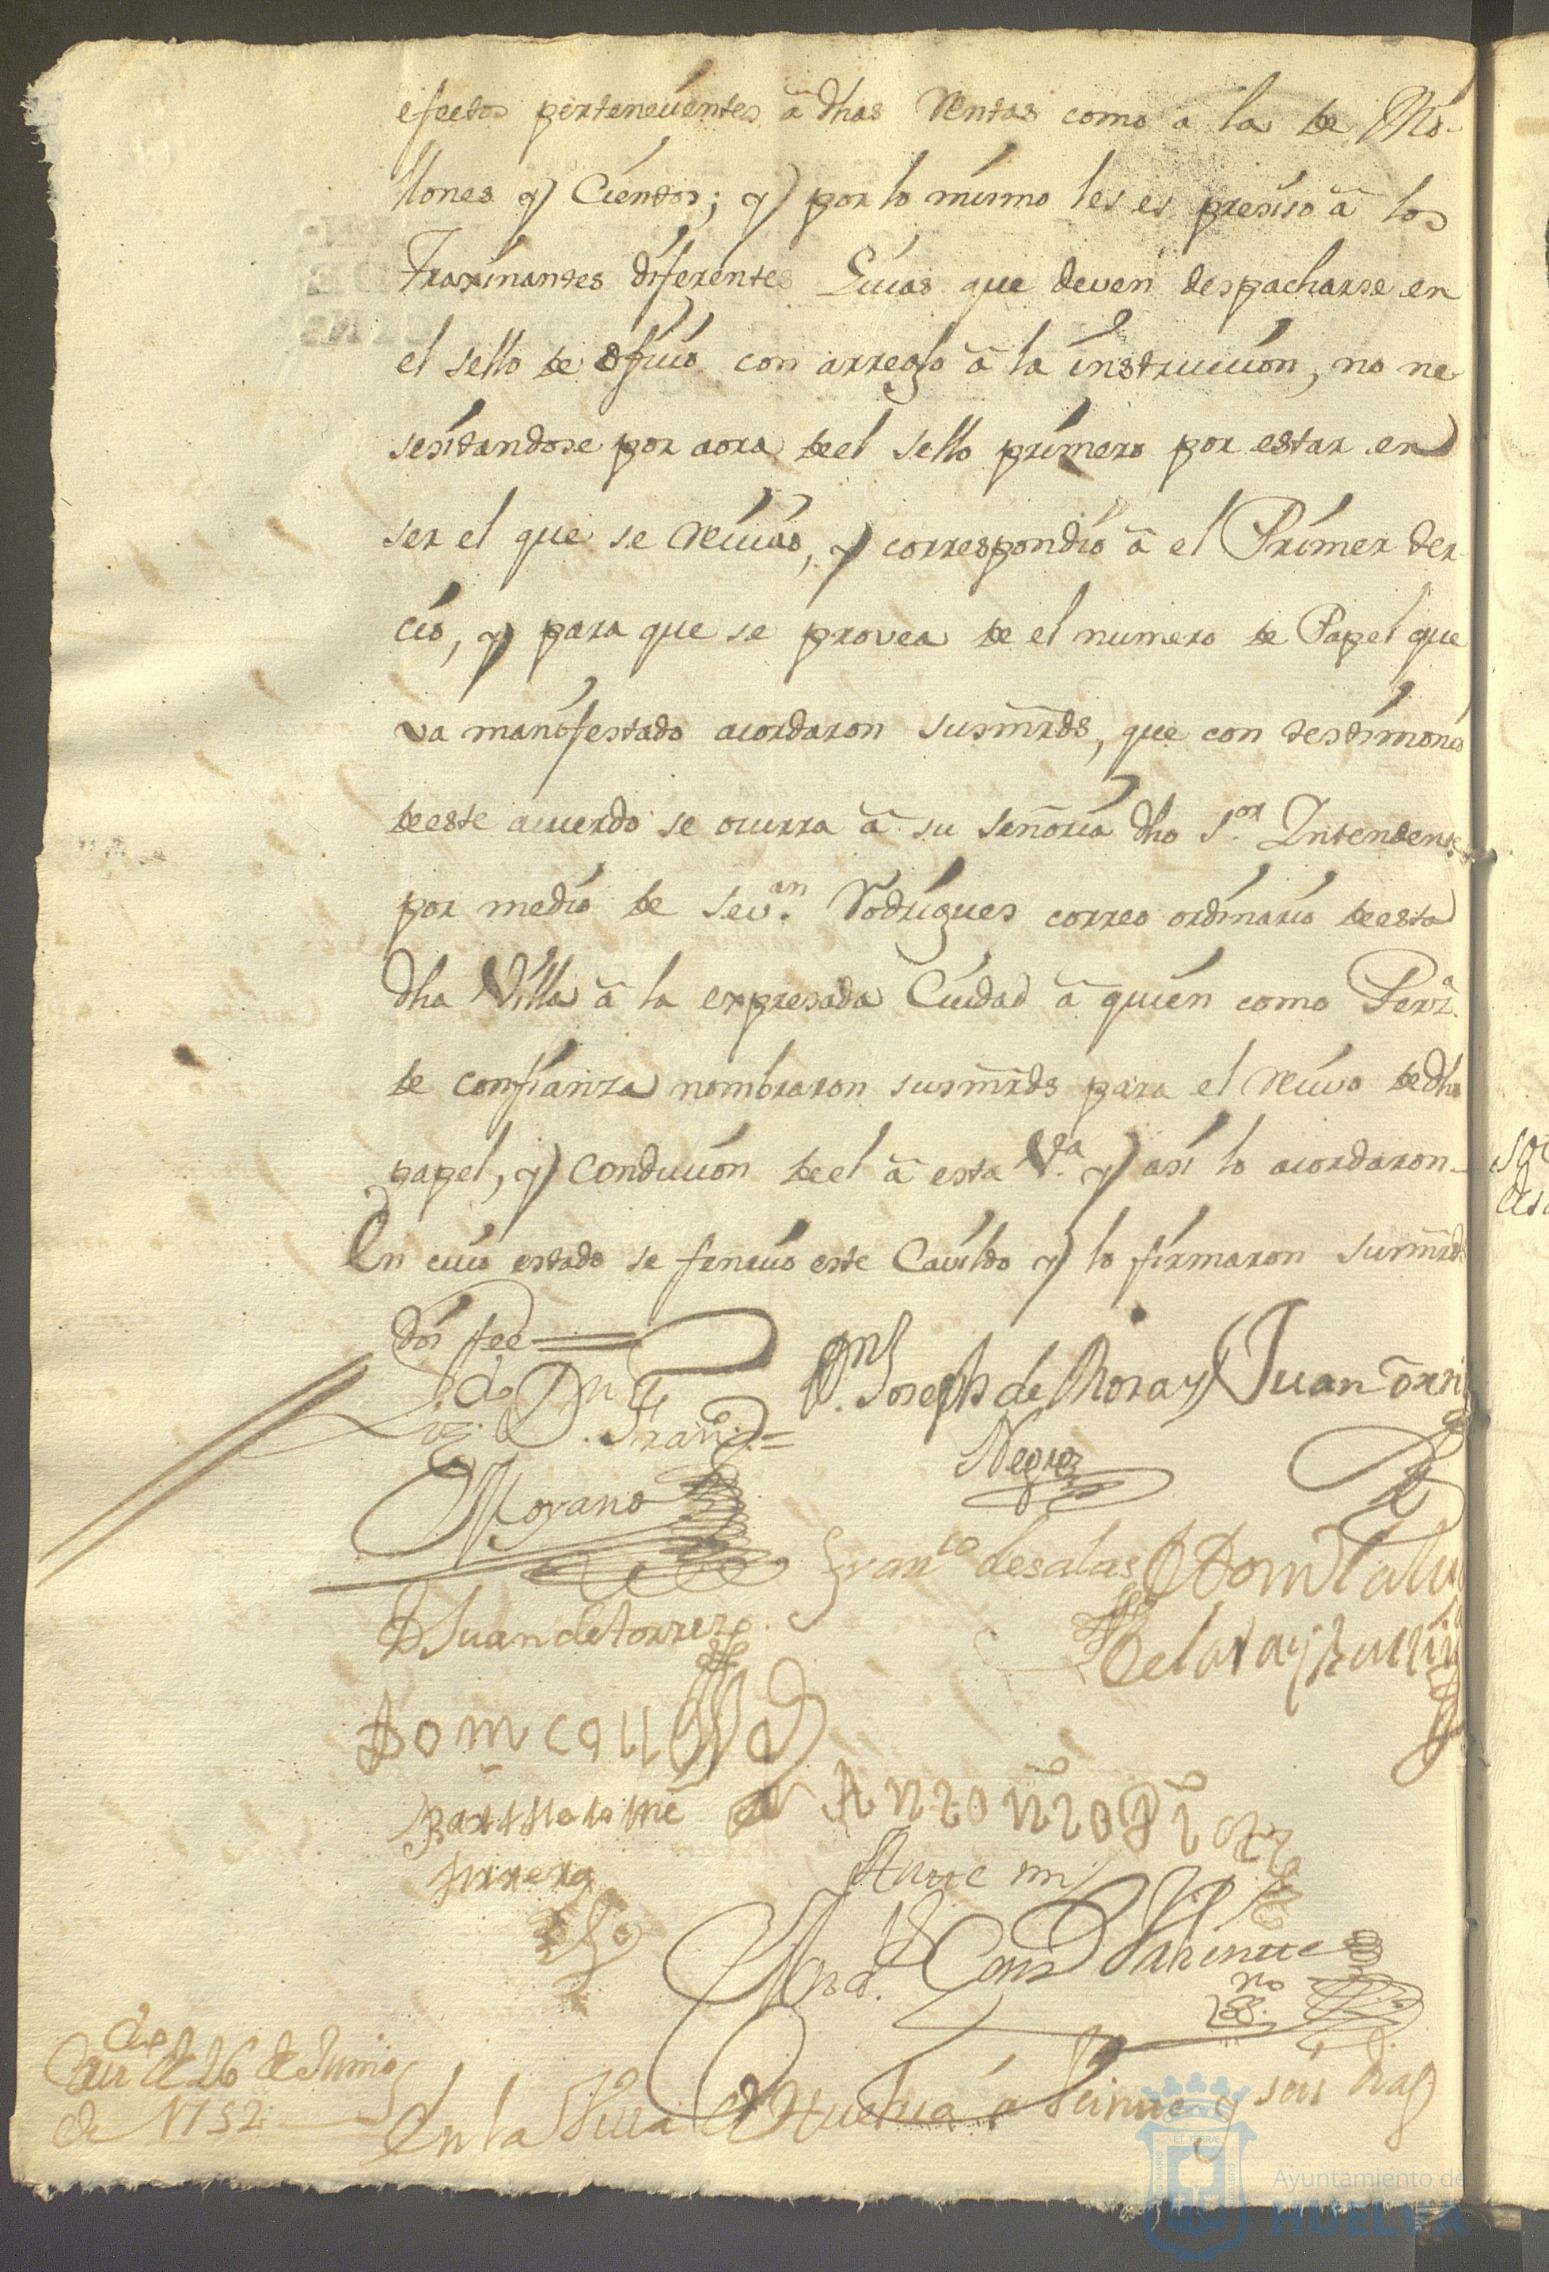 efectos pertenecientes â dhas Rentas como a la de Mi-
llones y Cientos; y por lo mismo les es presiso â los
Traxinantes diferentes Guias que deven despacharse en
el sello de oficio con arreglo â la instruccion, no ne-
sesitandose por aora de el sello primero por estar en
ser el que se reciuio, y correspondio â el Primer ter-
cio, y para que se provea de el numero de Papel que
va manifestado acordaron susmrds, que con testimonio
de este acuerdo se ocurra â su señoria dho Sor. Intendente
por medio de Sevan. Rodrigues correo ordinario de esta
dha Villa â la expresada Ciudad â quien como Perza.
de confianza nombraron susmrds para el recivo de dho
papel, y conduccion de el â esta Va. y asi lo acordaron
En cuio estado se fenecio este Cavildo y lo firmaron susmrds
doi fee
Lzdo. Dn. Franco.
Moyano
Dn. Joseph de Mora y
Negro
Juan
Franco de salas
D Juan de torres
Bartholome
Herrera
Antonio
Ante mi
Cavdo de 26 de Junio
de 1752
En la Villa de Huelva a Veinte y seis dias
Ayuntamiento de
HUELVA